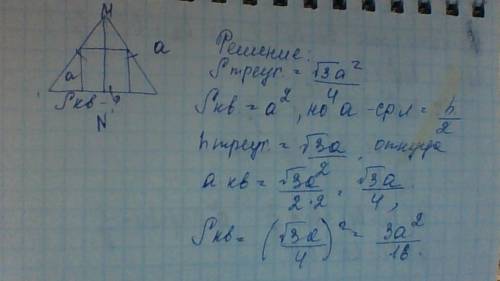 M
a
a
Sкв - ?
N
Решение:
Sтреуг. = √3a²/4
Sкв = a², но a - = h/2
hтреуг. = √3a/2, откуда
a кв = √3a/2·2 = √3a/4,
Sкв = (√3a/4)² = 3a²/16.